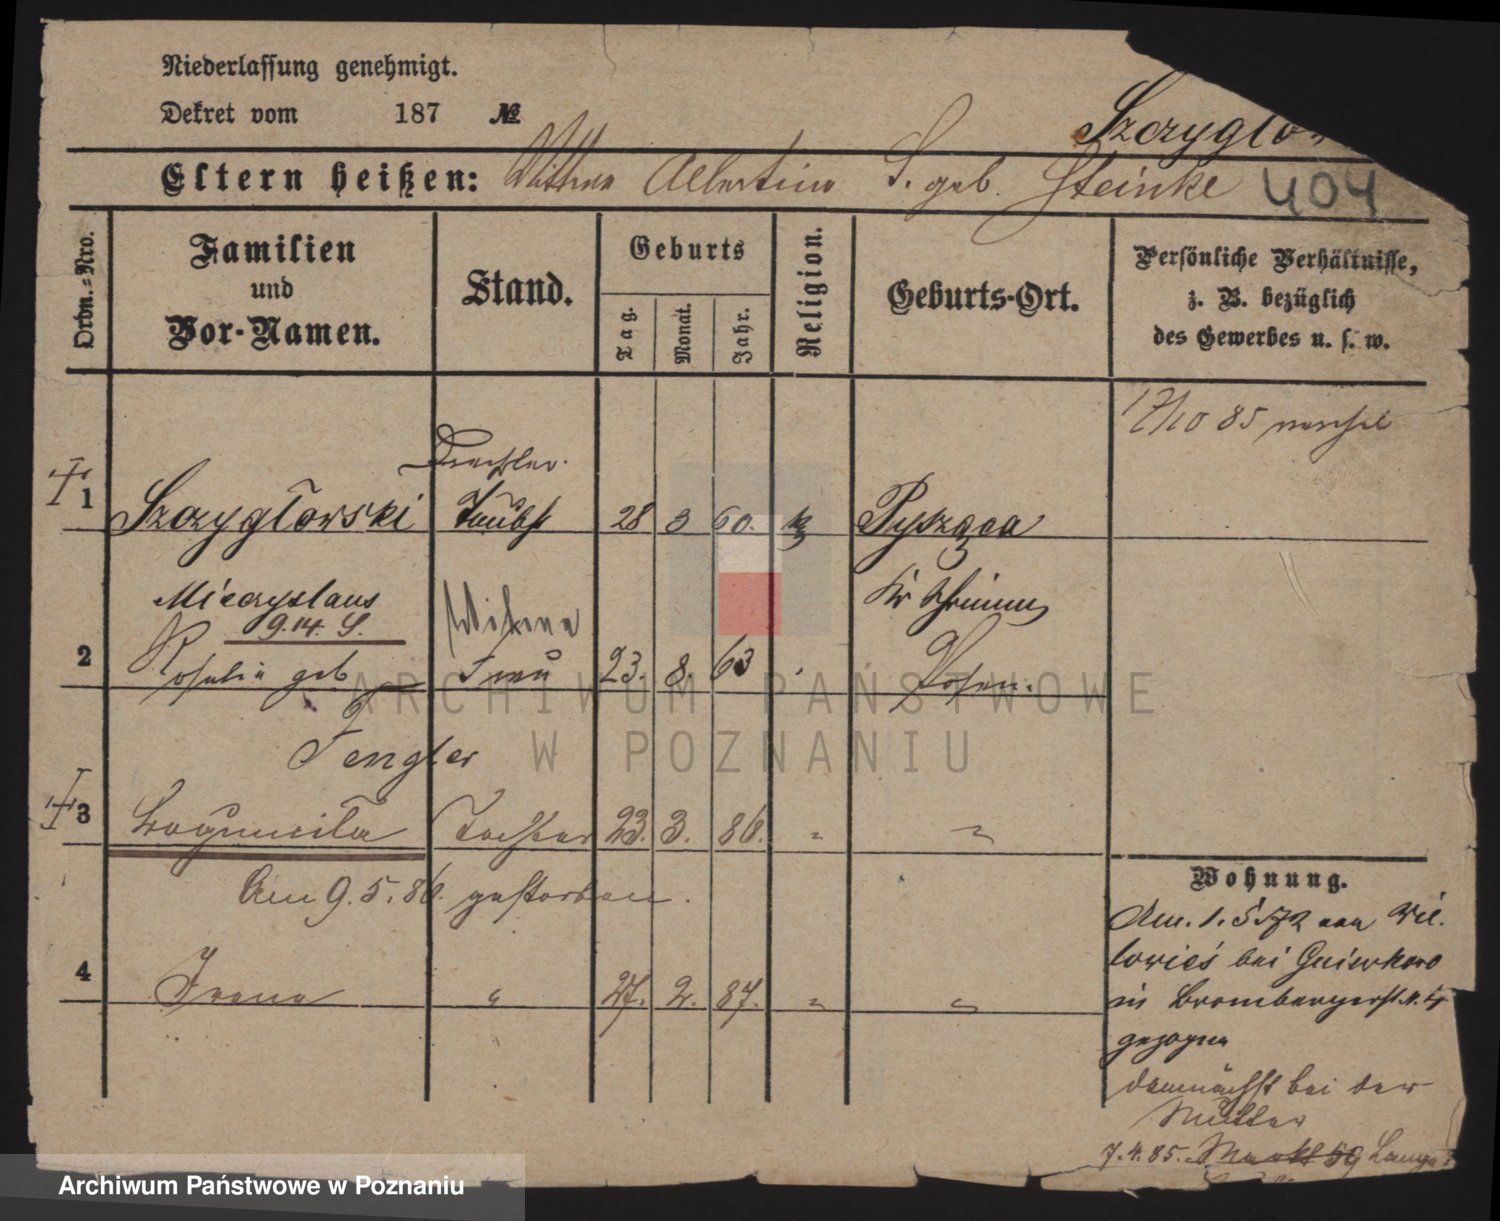 Niederlassung genehmigt.
Dekret vom 187 №
Szczygło
Eltern heißen: Albertine S. geb. Steinke 404
Ordn.=Nro.
Familien
und
Vor-Namen.
Stand.
Geburts
Tag.
Monat.
Jahr.
Religion.
Geburts-Ort.
Persönliche Verhältnisse,
z. B. bezüglich
des Gewerbes u. s. w.
17/10 85
Drechsler.
1 Szczygłorski taubst 28 3 60. k Pysząca
Mieczyslaus Kr Schrimm
9.14. S. Witwe
2 Rosalie geb Frau 23. 8. 63 Posen.
Fengler
3 Bogumiła Tochter 23. 3. 86. " "
Am 9.5.86. gestorben.
4 Irene " 27. 2. 87. " "
Wohnung.
Am. 1. 5. 72 von Wie.
lowies bei Gniewkowo
in Brombergerst. N. 4
gezogen
demnächst bei der
Mutter
7.4.85. Markt 59
ARCHIWUM PAŃSTWOWE
W POZNANIU
Archiwum Państwowe w Poznaniu